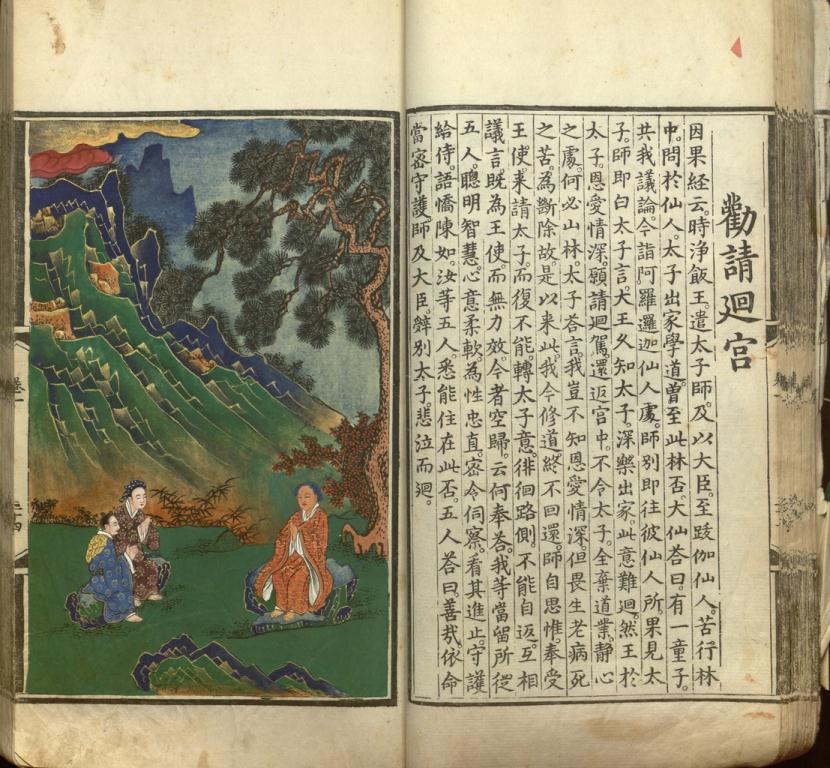 勸請廻宮
因果経云。時浄飯王。遣太子師。及以大臣。至跋伽仙人。苦行林
中。問於仙人。太子出家學道。曽至此林否。大仙荅曰。有一童子。
共我議論。今詣阿羅邏迦仙人處。師別即往彼仙人所。果見太
子。師即白太子言。大王久知太子。深樂出家。此意難廻。然王於
太子。恩愛情深。願請廻駕。還返宮中。不令太子。全棄道業。静心
之處。何必山林。太子荅言。我豈不知恩愛情深。但畏生老病死
之苦。為斷除故。是以来此。我今修道。終不回還。師自思惟。奉受
王使。来請太子。而復不能。轉太子意。徘徊路側。不能自返。互相
議言。既為王使。而無力效。今者空歸。云何奉荅。我等當留所從
五人。聰明智慧。心意柔軟。為性忠直。密令伺察。看其進止。守護
給侍。語憍陳如。汝等五人。悉能住在此否。五人荅曰。善哉。依命
當密守護。師及大臣。辭別太子。悲泣而廻。
卷一
三十四